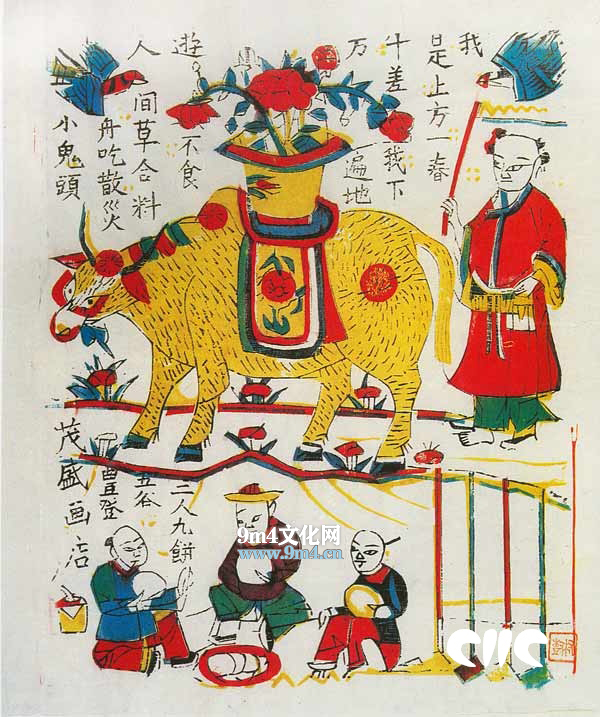 我
是上方一春
牛差我下
万遍地
遊不食
人间草合料
舟吃散災
小鬼頭
二人九餅
五谷
豊登
茂盛画店
9m4文化网
www.9m4.cn